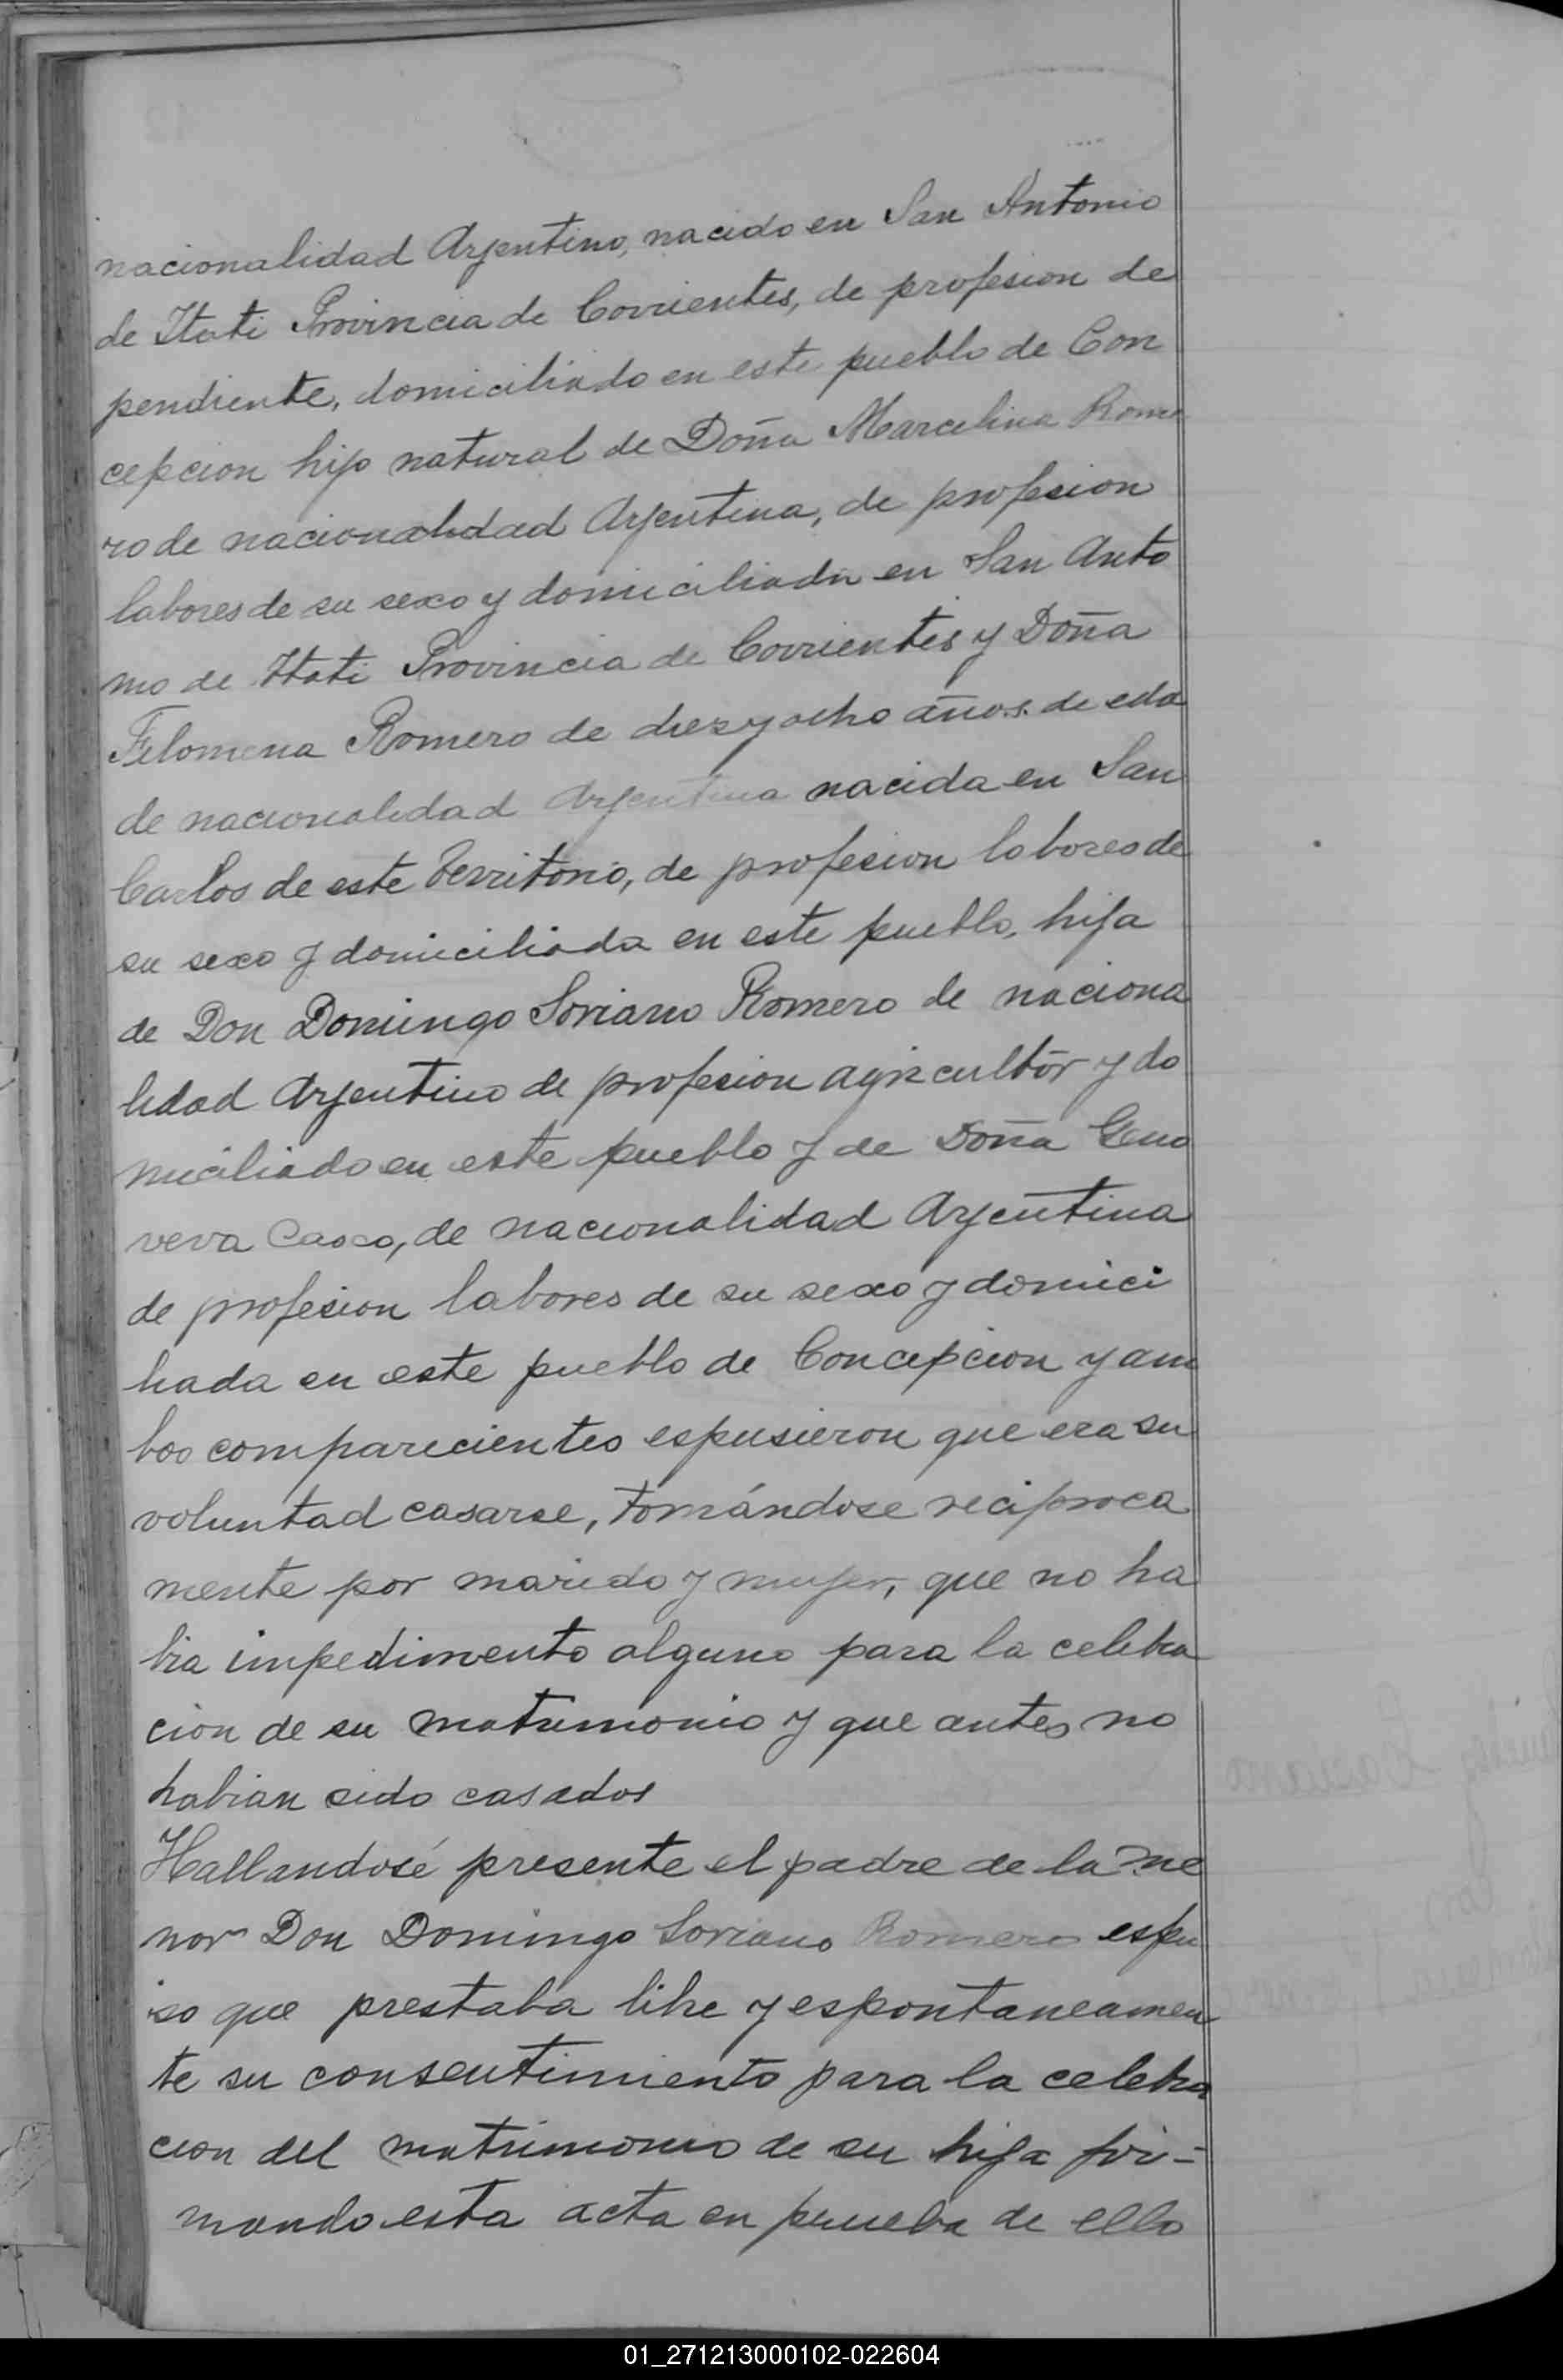 nacionalidad Arjentino, nacido en San Antonio
de Itati Provincia de Corrientes, de profesion de
pendiente, domiciliado en este pueblo de Con
cepcion hijo natural de Doña Marcelina Rome
ro de nacionalidad Arjentina, de profesion
labores de su sexo y domiciliada en San Anto
nio de Itati Provincia de Corrientes y Doña
Filomena Romero de diez y ocho años de eda
de nacionalidad Arjentina nacida en San
Carlos de este Territorio, de profesion labores de
su sexo y domiciliada en este pueblo, hija
de Don Domingo Soriano Romero de naciona
lidad Arjentino de profesion agricultor y do
miciliado en este pueblo y de Doña Geno
veva Casco, de nacionalidad Arjentina
de profesion labores de su sexo y domici
liada en este pueblo de Concepcion y am
bos comparecientes espusieron que era su
voluntad casarse, tomándose reciproca
mente por marido y mujer, que no ha
bia impedimento alguno para la celebra
cion de su matrimonio y que antes no
habian sido casados
Hallandosé presente el padre de la me
nor Don Domingo Soriano Romero espu
so que prestaba libre y espontaneamen
te su consentimiento para la celebra
cion del matrimonio de su hija fir-
mando esta acta en prueba de ello
01_271213000102-022604